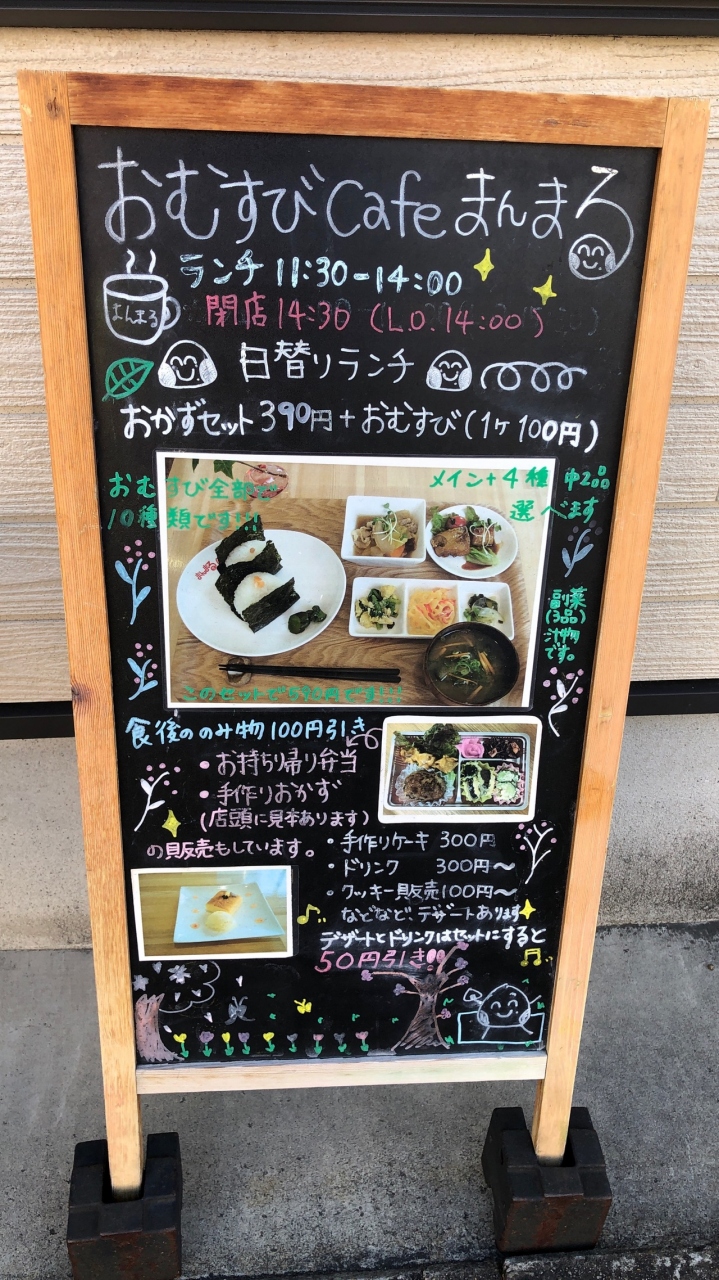 おむすびCafeまんまる
ランチ 11:30-14:00
まんまる
閉店14:30 (L.O.14:00)
日替りランチ
おかずセット390円+おむすび(1ケ100円)
おむすび全部で
10種類です!!!
メイン+4種 中2品
選べます
副菜
(3品)
汁物
です。
このセットで590円です!!!
食後ののみ物100円引き
・お持ち帰り弁当
・手作りおかず
(店頭に見本あります)
の販売もしています。
・手作りケーキ 300円
・ドリンク 300円〜
・クッキー販売100円〜
などなど デザートあります
デザートとドリンクはセットにすると
50円引き!!